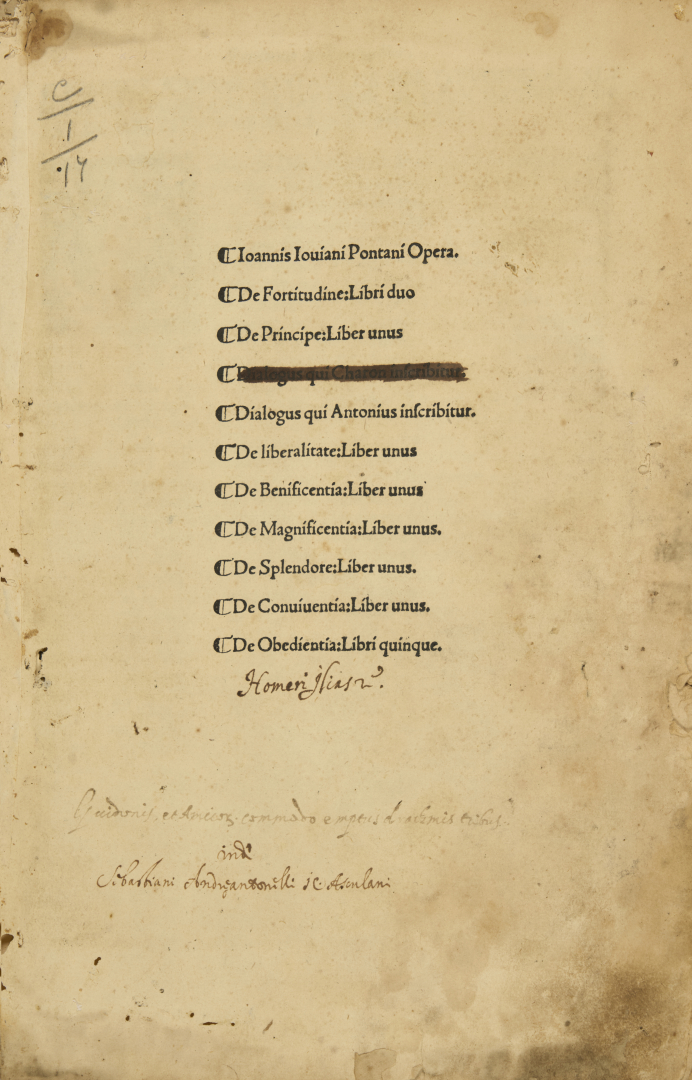 C
1
17
⸿Ioannis Iouiani Pontani Opera.
⸿De Fortitudine:Libri duo
⸿De Principe:Liber unus
⸿Dialogus qui Charon inſcribitur.
⸿Dialogus qui Antonius inſcribitur.
⸿De liberalitate:Liber unus
⸿De Benificentia:Liber unus
⸿De Magnificentia:Liber unus.
⸿De Splendore:Liber unus.
⸿De Conuiuentia:Liber unus.
⸿De Obedientia:Libri quinque.
Homeri Ilias
et commodo emptus
Sebastiani Andreantonelli Asculani